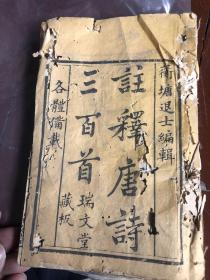 蘅塘退士編輯
註釋唐詩
三百首
瑞文堂
藏板
各體備載